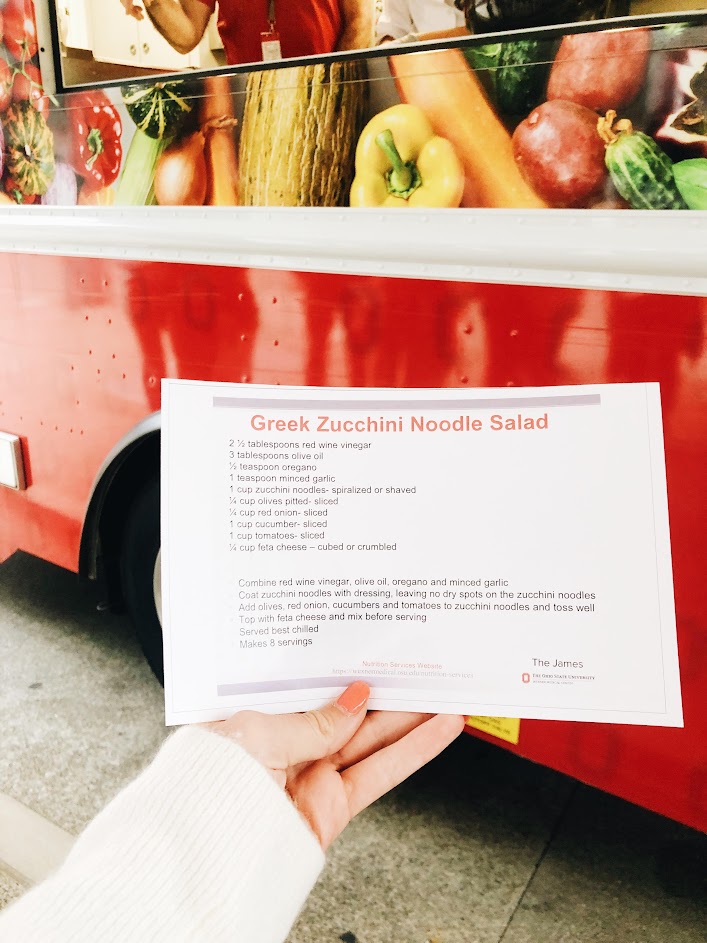 Greek Zucchini Noodle Salad
2 ½ tablespoons red wine vinegar
3 tablespoons olive oil
½ teaspoon oregano
1 teaspoon minced garlic
1 cup zucchini noodles- spiralized or shaved
¼ cup olives pitted- sliced
¼ cup red onion- sliced
1 cup cucumber- sliced
1 cup tomatoes- sliced
¼ cup feta cheese – cubed or crumbled
Combine red wine vinegar, olive oil, oregano and minced garlic
Coat zucchini noodles with dressing, leaving no dry spots on the zucchini noodles
Add olives, red onion, cucumbers and tomatoes to zucchini noodles and toss well
Top with feta cheese and mix before serving
Served best chilled
Makes 8 servings
Nutrition Services Website
The James
The Ohio State University